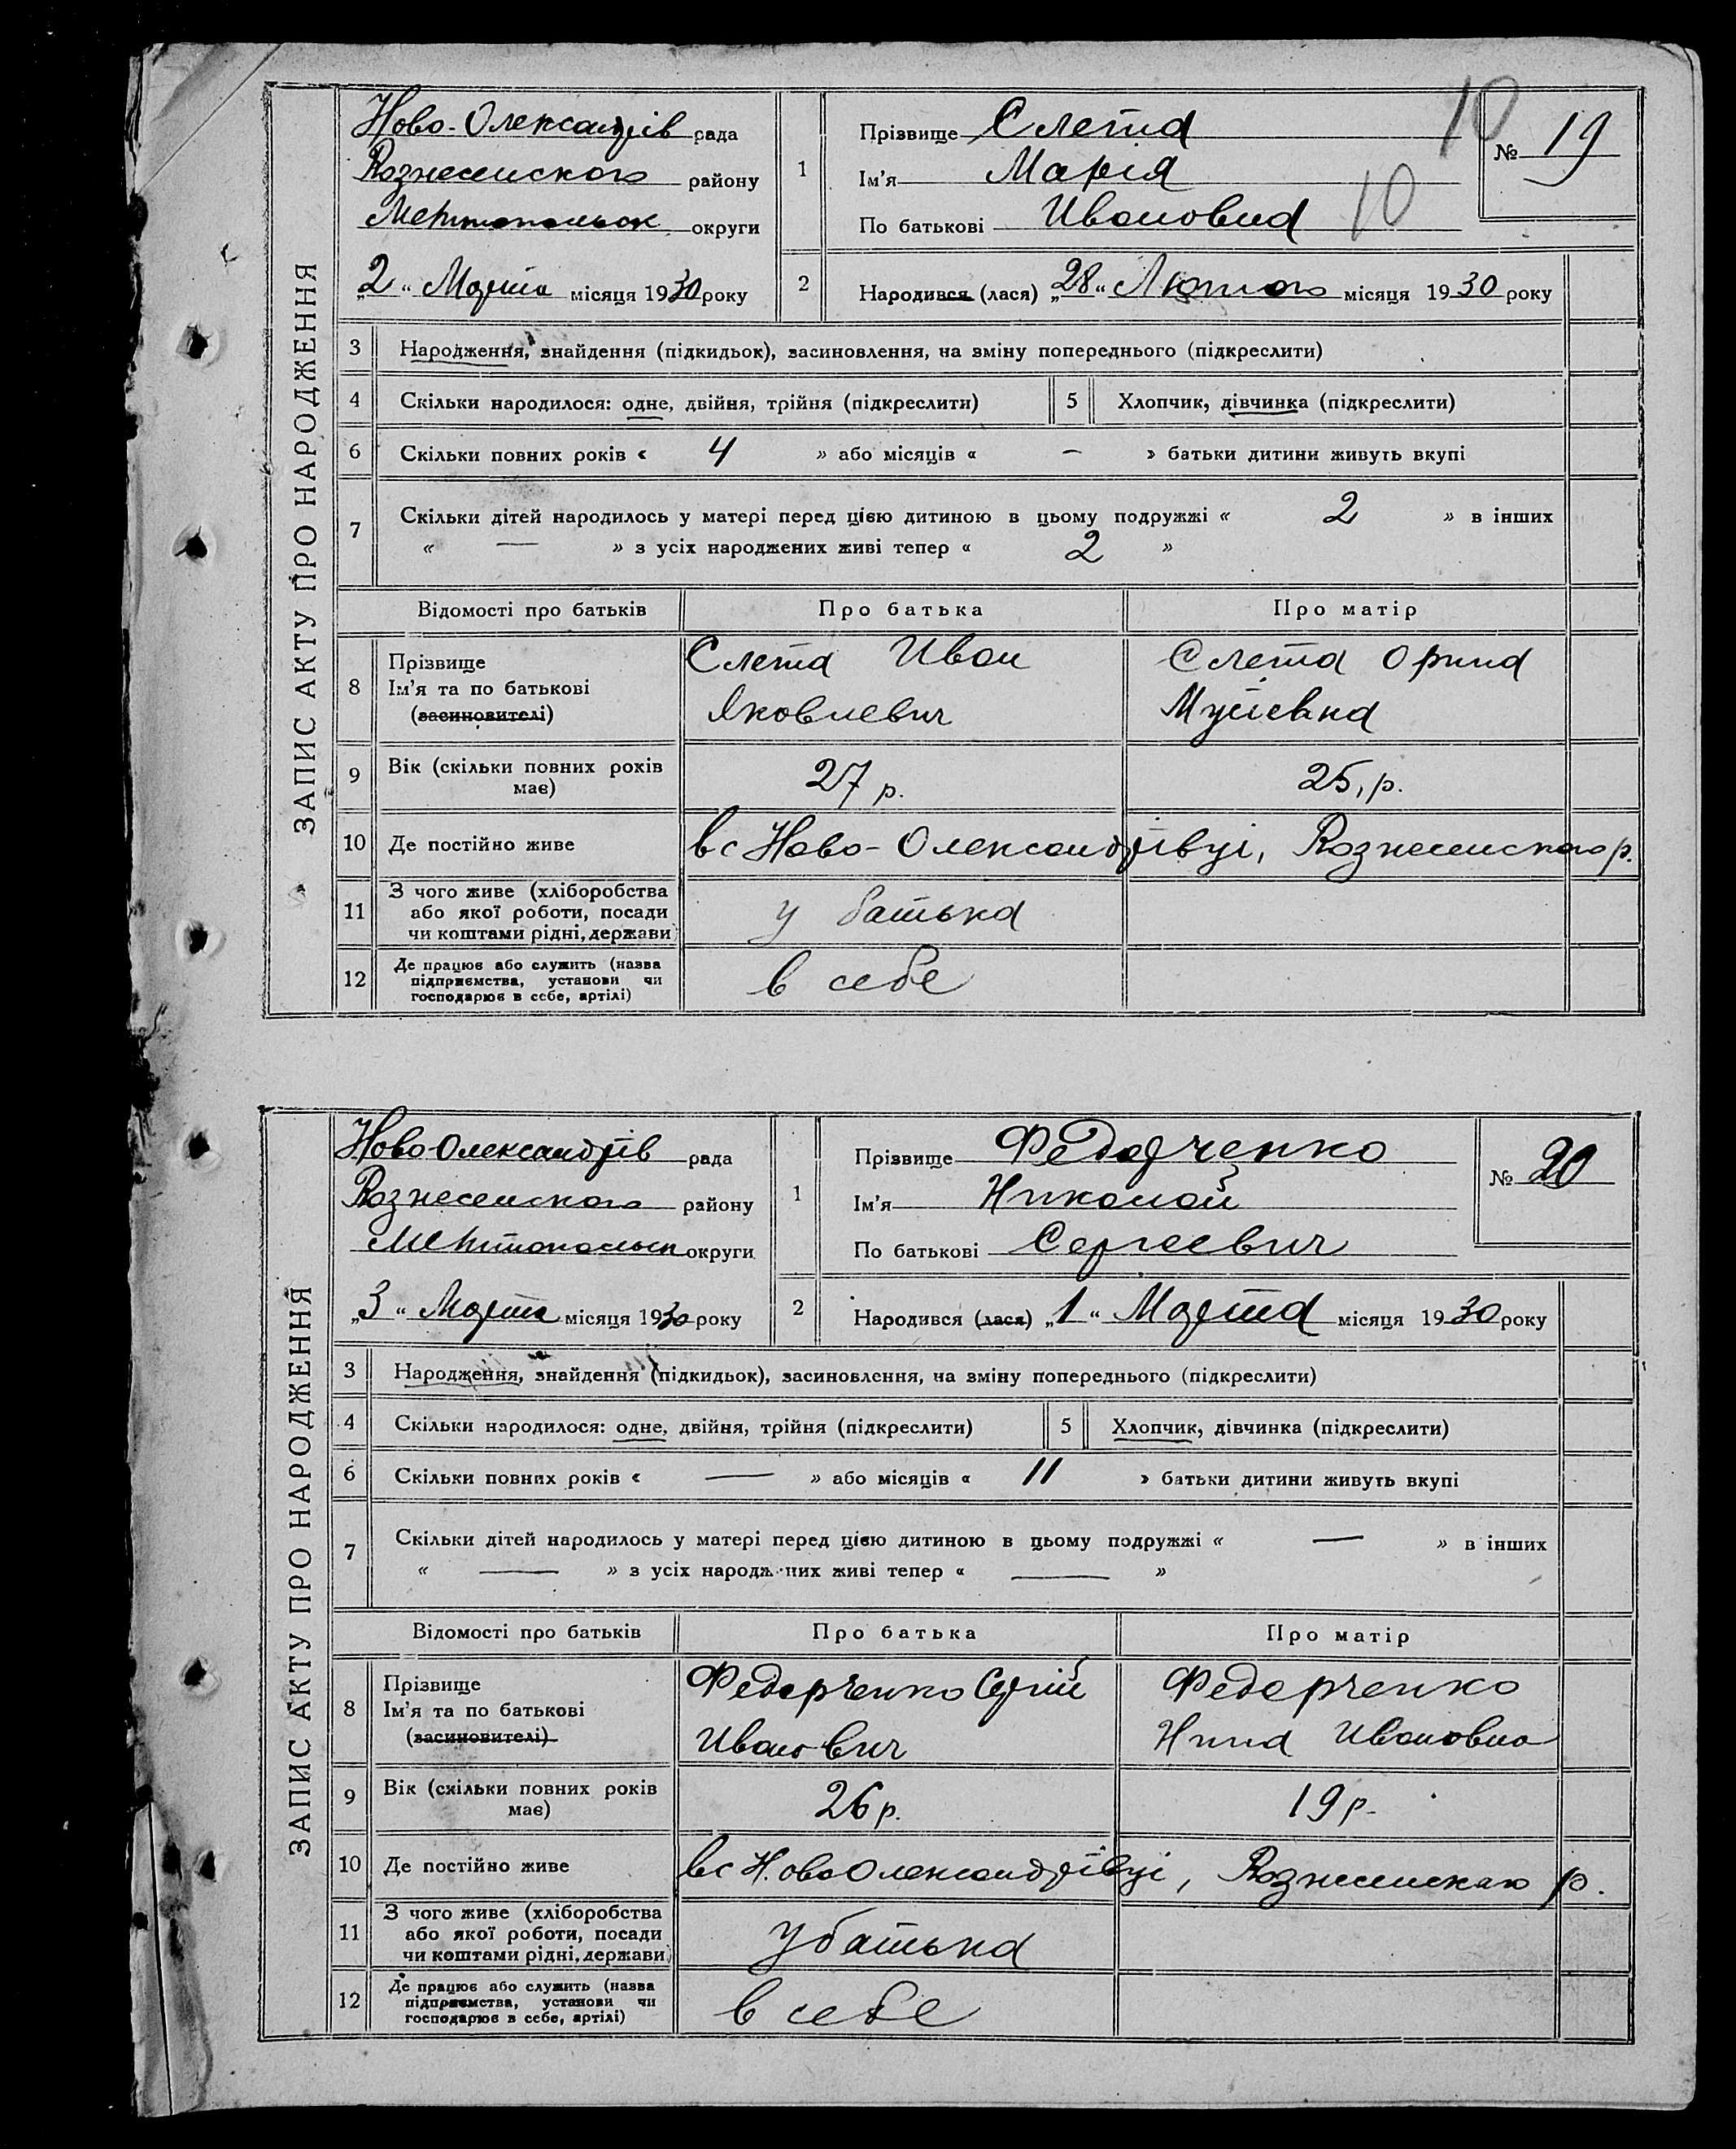 10
ЗАПИС АКТУ ПРО НАРОДЖЕННЯ
Ново-Олександрів рада
Вознесенского району
Мелитопольск округи
„2“ Марта місяця 1930 року
1
Прізвище Слета
Ім'я Марія
По батькові Ивановна
10
№ 19
2 Народився (лася) „28“ Лютого місяця 1930 року
3 Народження, знайдення (підкидьок), засиновлення, на зміну попереднього (підкреслити)
4 Скільки народилося: одне, двійня, трійня (підкреслити) 5 Хлопчик, дівчинка (підкреслити)
6 Скільки повних років « 4 » або місяців « — » батьки дитини живуть вкупі
7 Скільки дітей народилось у матері перед цією дитиною в цьому подружжі « 2 » в інших
« — » з усіх народжених живі тепер « 2 »
Відомості про батьків Про батька Про матір
8 Прізвище
Ім'я та по батькові
(засиновителі)
Слета Иван
Яковлевич
Слета Орина
9 Вік (скільки повних років
має) 27 р. 25, р.
10 Де постійно живе в с Ново-Олександрівці, Вознесенского р.
11 З чого живе (хліборобства
або якої роботи, посади
чи коштами рідні, держави)
у батька
12 Де працює або служить (назва
підприємства, установи чи
господарює в себе, артілі)
в себе
ЗАПИС АКТУ ПРО НАРОДЖЕННЯ
Ново Олександрів рада
Вознесенского району
Мелитопольск округи
„3“ Марта місяця 1930 року
1
Прізвище Федорченко
Ім'я Николай
По батькові Сергеевич
№ 20
2 Народився (лася) „1“ Марта місяця 1930 року
3 Народження, знайдення (підкидьок), засиновлення, на зміну попереднього (підкреслити)
4 Скільки народилося: одне, двійня, трійня (підкреслити) 5 Хлопчик, дівчинка (підкреслити)
6 Скільки повних років « — » або місяців « 11 » батьки дитини живуть вкупі
7 Скільки дітей народилось у матері перед цією дитиною в цьому подружжі « — » в інших
« — » з усіх народжених живі тепер « — »
Відомості про батьків Про батька Про матір
8 Прізвище
Ім'я та по батькові
(засиновителі)
Федорченко Сргій
Иванович
Федорченко
Нина Ивановна
9 Вік (скільки повних років
має) 26 р. 19 р.
10 Де постійно живе в с Н. ово Олександрівці, Вознесенского р.
11 З чого живе (хліборобства
або якої роботи, посади
чи коштами рідні, держави)
у батька
12 Де працює або служить (назва
підприємства, установи чи
господарює в себе, артілі)
в себе